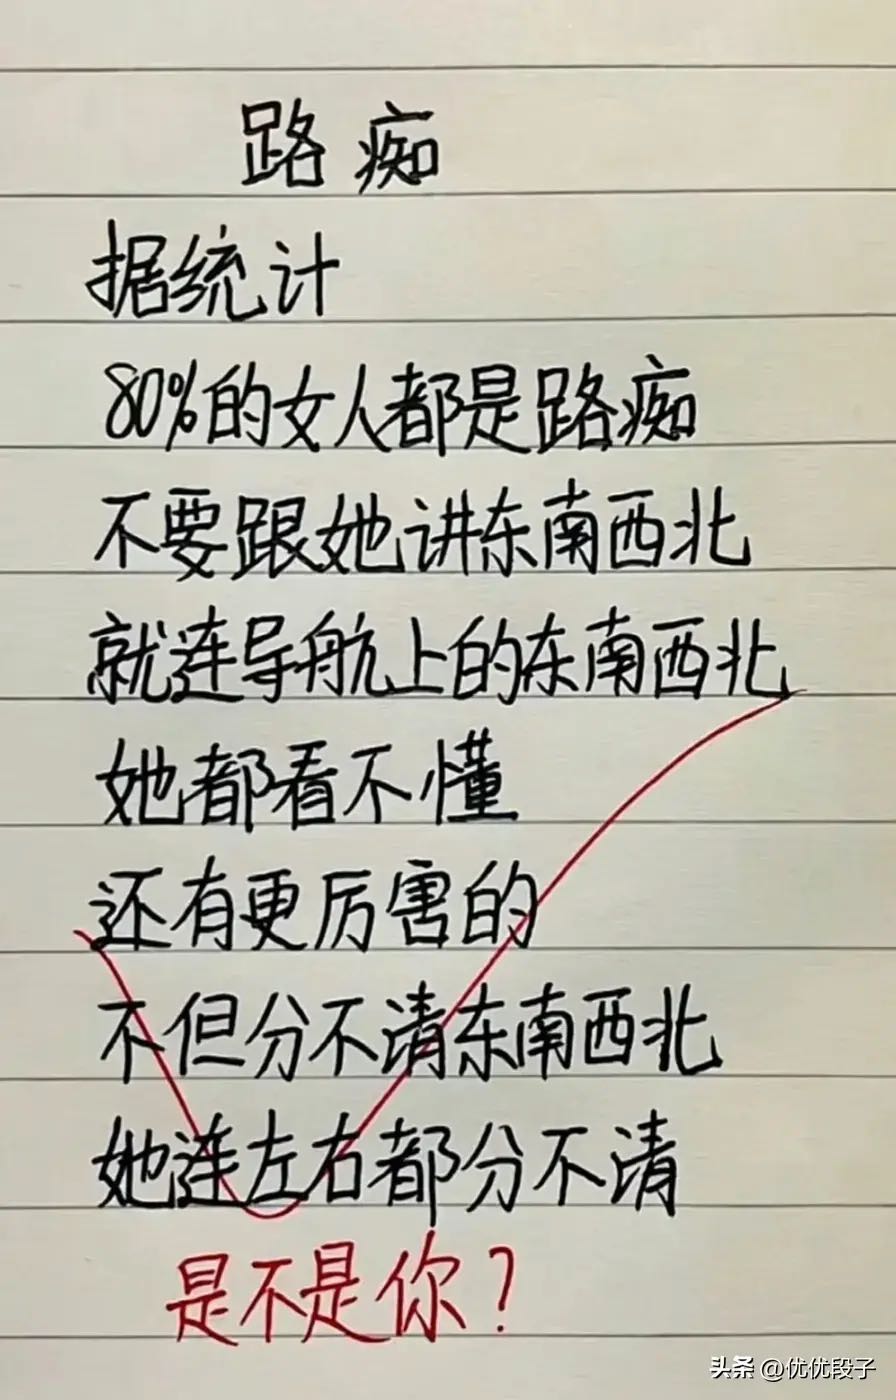 路痴
据统计
80%的女人都是路痴
不要跟她讲东南西北
就连导航上的东南西北
她都看不懂
还有更厉害的
不但分不清东南西北
她连左右都分不清
是不是你？
头条 @优优段子